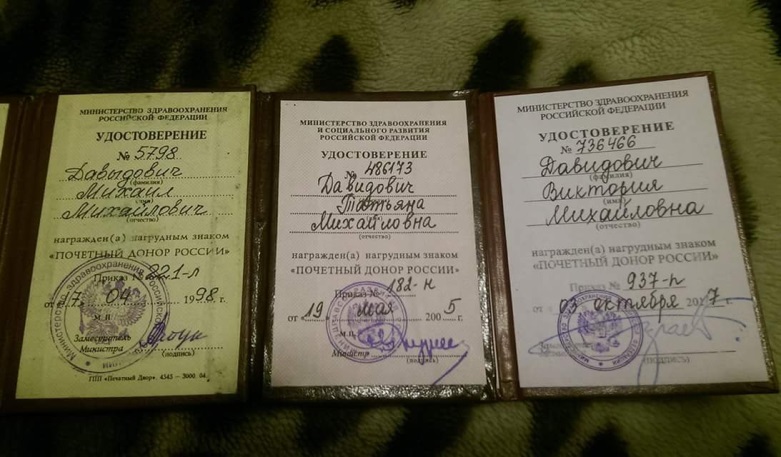 МИНИСТЕРСТВО ЗДРАВООХРАНЕНИЯ
РОССИЙСКОЙ ФЕДЕРАЦИИ
УДОСТОВЕРЕНИЕ
№ 5798
Давыдович
(фамилия)
Михаил
(имя)
Михайлович
(отчество)
награжден(а) нагрудным знаком
«ПОЧЕТНЫЙ ДОНОР РОССИИ»
Приказ № 221-л
от 17 04 1998 г.
М.П.
Заместитель
Министра
(подпись)
ППП «Печатный Двор». 4545—3000. 04
МИНИСТЕРСТВО ЗДРАВООХРАНЕНИЯ
И СОЦИАЛЬНОГО РАЗВИТИЯ
РОССИЙСКОЙ ФЕДЕРАЦИИ
УДОСТОВЕРЕНИЕ
№ 486173
Давидович
Татьяна
Михайловна
(отчество)
награжден(а) нагрудным знаком
«ПОЧЕТНЫЙ ДОНОР РОССИИ»
Приказ № 182-н
от 19 мая 2005 г.
М.П.
Министр
(подпись)
МИНИСТЕРСТВО ЗДРАВООХРАНЕНИЯ
РОССИЙСКОЙ ФЕДЕРАЦИИ
УДОСТОВЕРЕНИЕ
№ 736466
Давидович
(фамилия)
Виктория
(имя)
Михайловна
(отчество)
награжден(а) нагрудным знаком
"ПОЧЕТНЫЙ ДОНОР РОССИИ"
Приказ № 937-п
от 03 октября 2017 г.
(подпись)